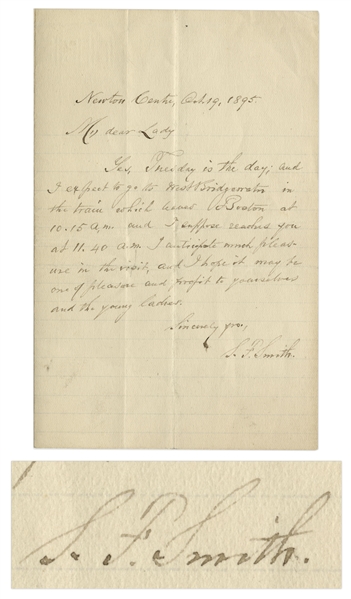 Newton Centre, Oct. 19, 1895.
My dear Lady
Yes, Tuesday is the day; and
I expect to go to West Bridgewater in
the train which leaves Boston at
10.15 a.m. and I suppose reaches you
at 11.40 a.m. I anticipate much pleas-
ure in the visit, and I hope it may be
one of pleasure and profit to yourselves
and the young ladies.
Sincerely yours,
S. F. Smith.
S. F. Smith.